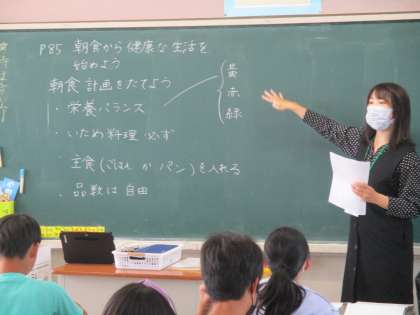 P85 朝食から健康な生活を
始めよう
朝食計画をたてよう
・栄養バランス
黄
赤
緑
・いため料理 必ず
・主食(ごはん か パン)を入れる
・品数は自由